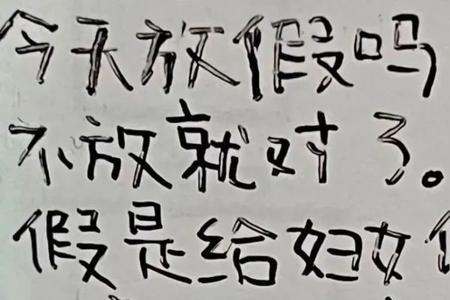 今天放假吗
不放就对了。
假是给妇女